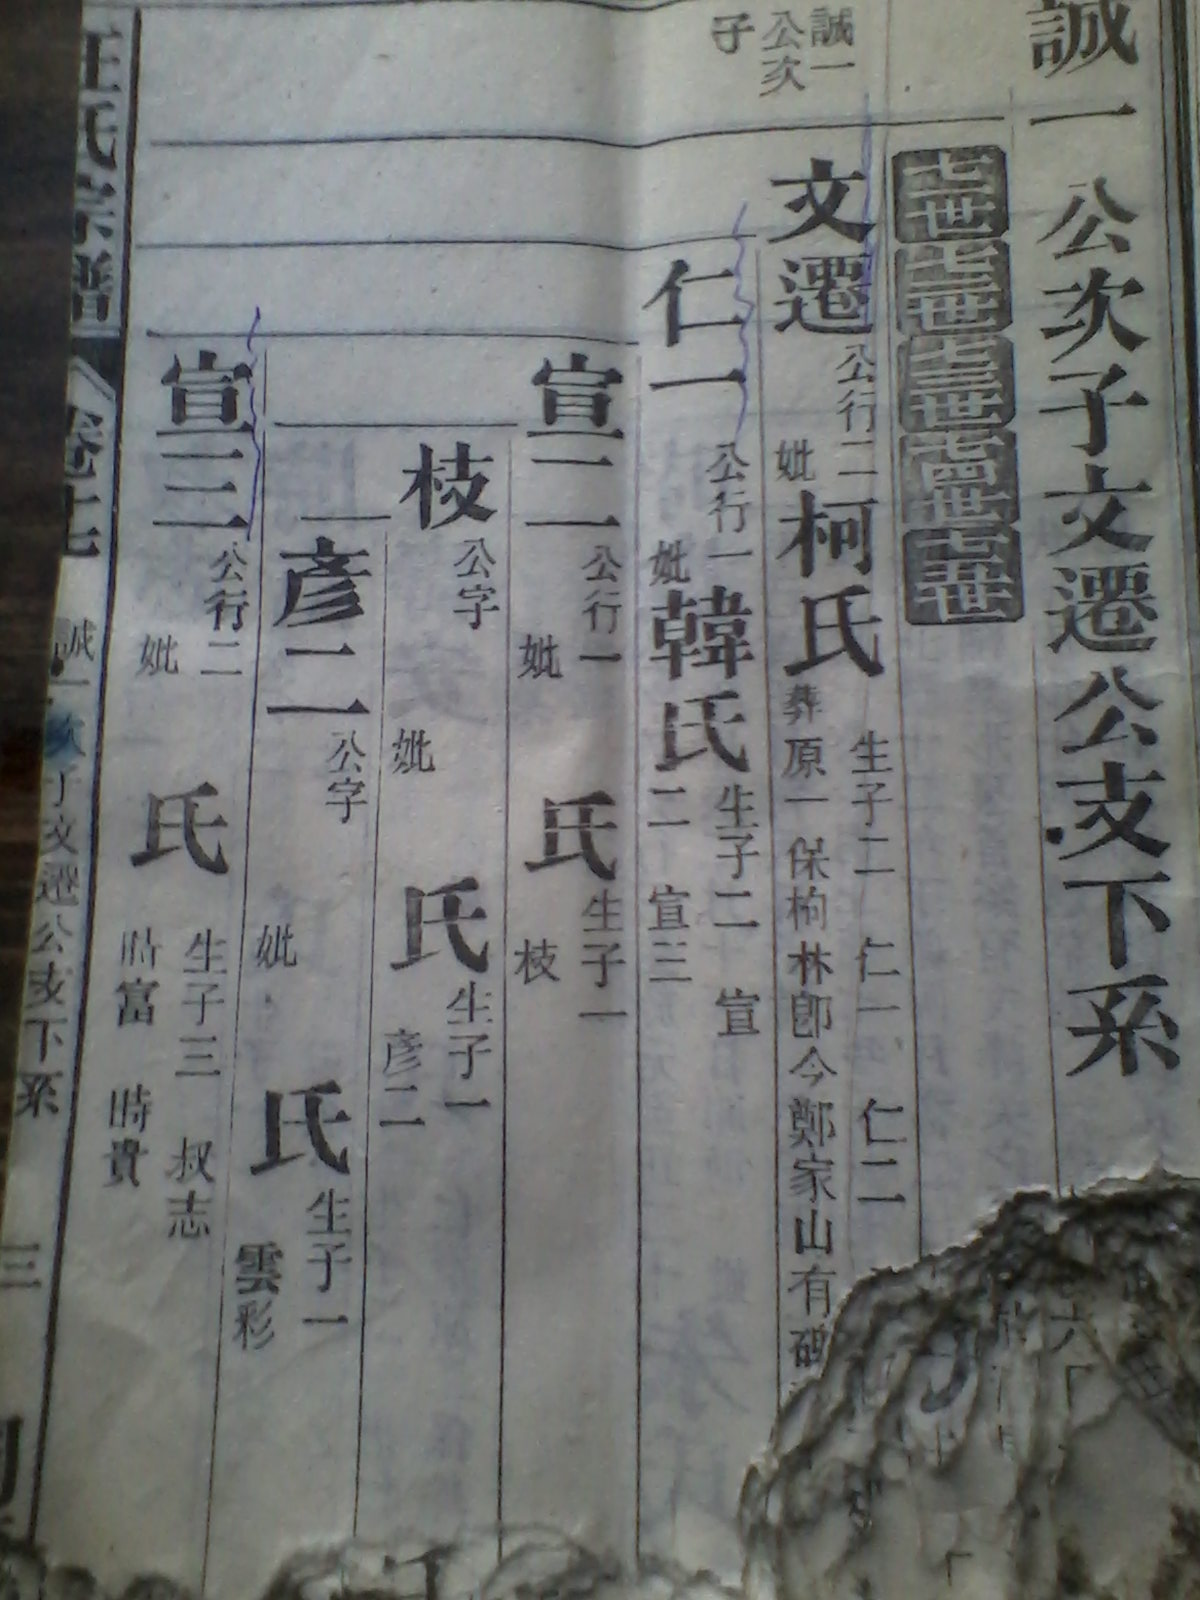 誠一公次子文遷公支下系
七一世七二世七三世七四世七五世
誠一
公次
子
文遷公行二妣柯氏生子二 仁一 仁二
葬原一保枸林郎今鄭家山有碑
仁一公行一妣韓氏生子二 宣
二 宣三
宣二公行一妣 氏生子一
枝
枝公字 妣 氏生子一
彦二
彦二公字 妣 氏生子一
雲彩
宣三公行二妣 氏生子三 叔志
時富 時貴
汪氏宗譜
卷七
誠一次子文遷公支下系
三